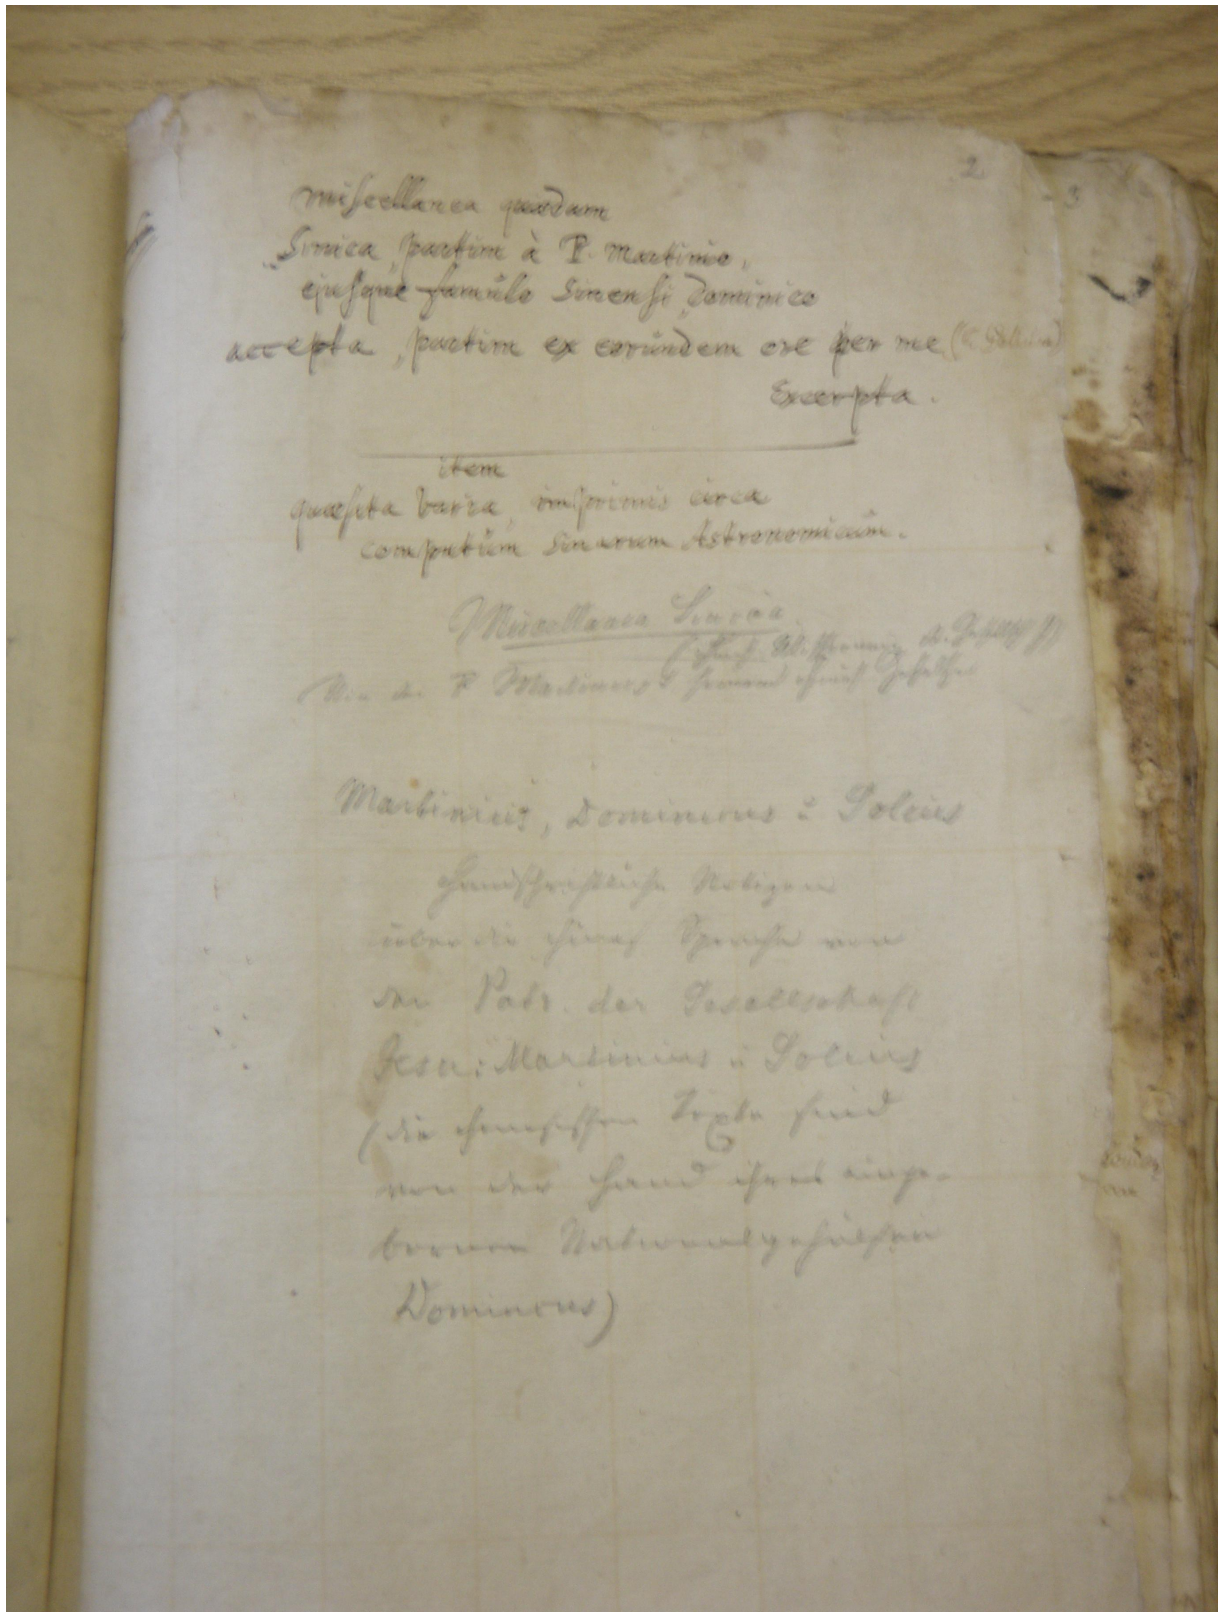 2
3
miscellanea quædam
Sinica, partim à P. Martinio,
ejusque famulo Sinensi Dominico
accepta, partim ex eorundem ore per me
excerpta.
item
quæsita varia inprimis circa
computum Sinarum Astronomicum.
Miscellanea Sinica
P Martinius
Martinius, Dominicus u Golius
Handschriftliche Notizen
über die chines Sprache von
den Patr. der Gesellschaft
Jesu: Martinius u Golius
(die chinesischen Texte sind
von der Hand ihres einge-
bornen Nationalgehülfen
Dominicus)